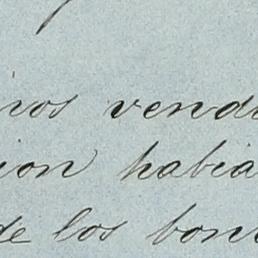 ivos vend
ion habia
de los bon